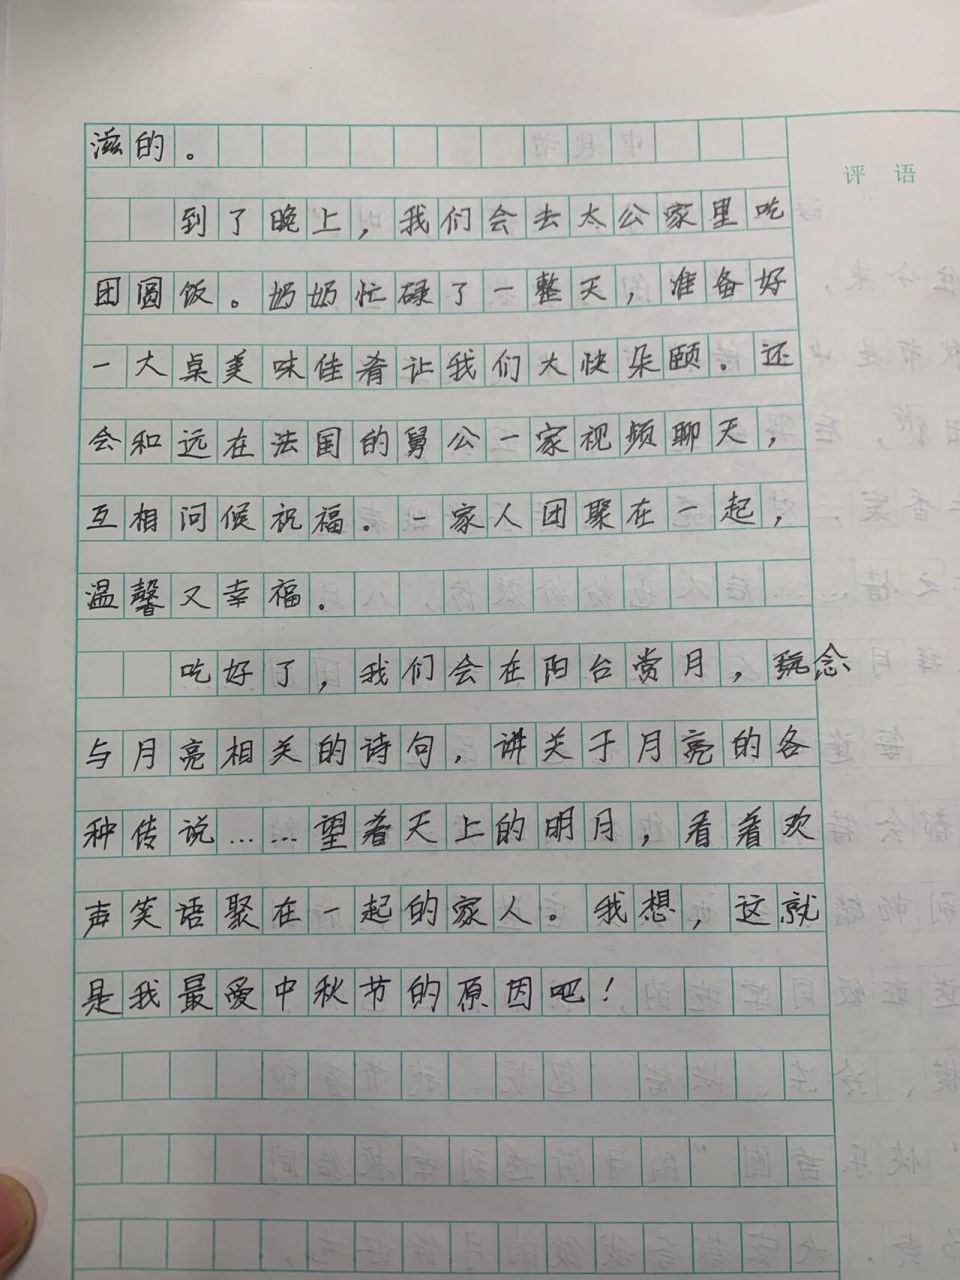 评 语
滋的。
到了晚上，我们会去太公家里吃
团圆饭。奶奶忙碌了一整天，准备好
一大桌美味佳肴让我们大快朵颐。还
会和远在法国的舅公一家视频聊天，
互相问候祝福。一家人团聚在一起，
温馨又幸福。
吃好了，我们会在阳台赏月，玩念
与月亮相关的诗句，讲关于月亮的各
种传说……望着天上的明月，看着欢
声笑语聚在一起的家人。我想，这就
是我最爱中秋节的原因吧！